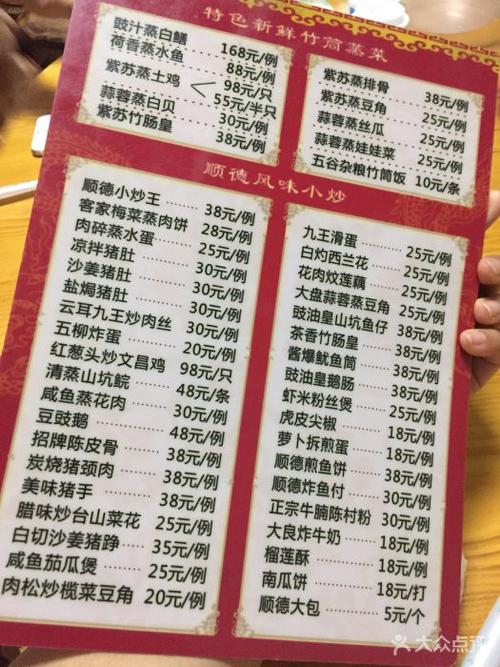 特色新鲜竹筒蒸菜
豉汁蒸白鳝 168元/例
荷香蒸水鱼 88元/例
紫苏蒸土鸡 98元/只
55元/半只
蒜蓉蒸白贝 30元/例
紫苏竹肠皇 38元/例
紫苏蒸排骨 38元/例
紫苏蒸豆角 25元/例
蒜蓉蒸丝瓜 25元/例
蒜蓉蒸娃娃菜 25元/例
五谷杂粮竹筒饭 10元/条
顺德风味小炒
顺德小炒王 38元/例
客家梅菜蒸肉饼 28元/例
肉碎蒸水蛋 25元/例
凉拌猪肚 30元/例
沙姜猪肚 30元/例
盐焗猪肚 30元/例
云耳九王炒肉丝 30元/例
五柳炸蛋 20元/例
红葱头炒文昌鸡 98元/只
清蒸山坑鲩 48元/条
咸鱼蒸花肉 30元/例
豆豉鹅 48元/例
招牌陈皮骨 38元/例
炭烧猪颈肉 38元/例
美味猪手 38元/例
腊味炒台山菜花 25元/例
白切沙姜猪踭 35元/例
咸鱼茄瓜煲 25元/例
肉松炒榄菜豆角 20元/例
九王滑蛋 25元/例
白灼西兰花 25元/例
花肉炆莲藕 25元/例
大盘蒜蓉蒸豆角 25元/例
豉油皇山坑鱼仔 38元/例
茶香竹肠皇 38元/例
酱爆鱿鱼筒 38元/例
豉油皇鹅肠 38元/例
虾米粉丝煲 25元/例
虎皮尖椒 18元/例
萝卜拆煎蛋 18元/例
顺德煎鱼饼 38元/例
顺德炸鱼付 30元/例
正宗牛腩陈村粉 30元/例
大良炸牛奶 18元/例
榴莲酥 18元/例
南瓜饼 18元/打
顺德大包 5元/个
大众点评